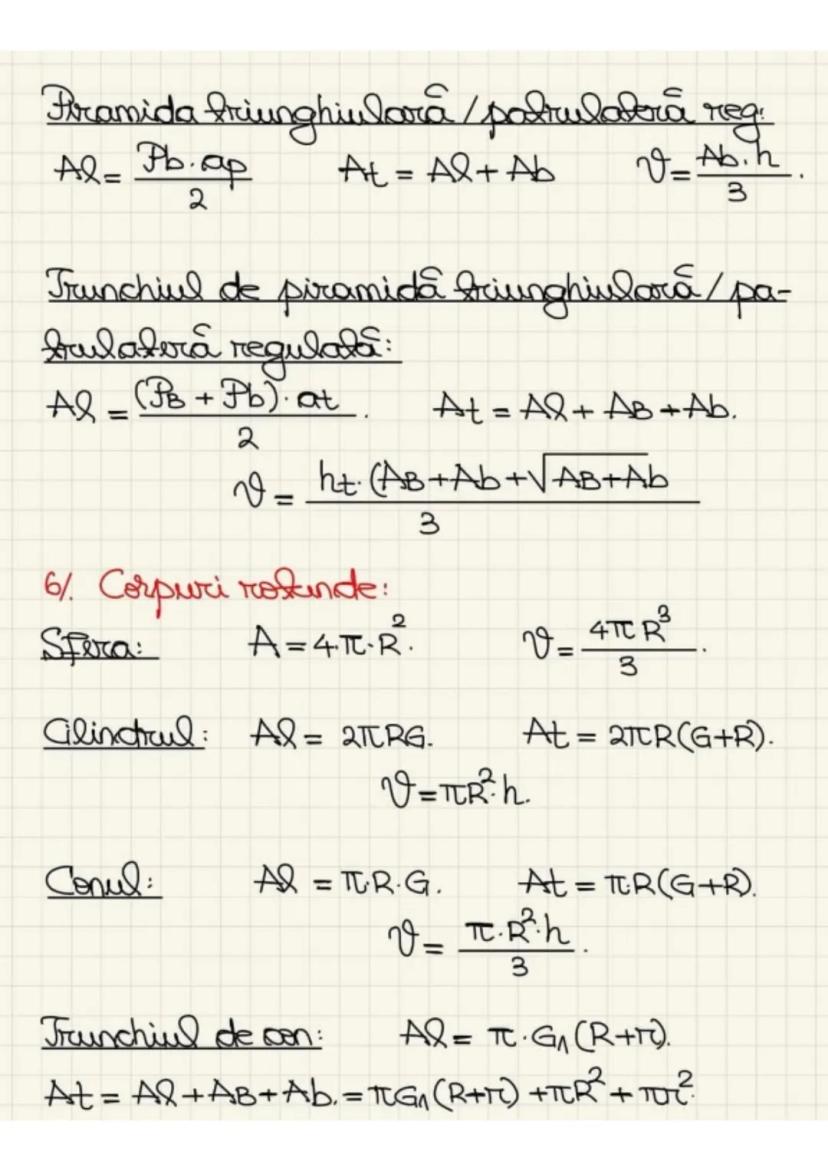 Piramida triunghiulară / patrulateră reg:
Al = Pb·ap / 2    At = Al + Ab    V = Ab·h / 3.
Trunchiul de piramidă triunghiulară / pa-
trulateră regulată:
Al = (PB + Pb)·at / 2.    At = Al + AB + Ab.
V = ht·(AB + Ab + √AB+Ab / 3
6/. Corpuri rotunde:
Sfera:    A = 4·π·R².    V = 4πR³ / 3.
Cilindrul:    Al = 2πRG.    At = 2πR(G+R).
V = πR²·h.
Conul:    Al = π·R·G.    At = π·R(G+R).
V = π·R²·h / 3.
Trunchiul de con:    Al = π·G₁(R+r).
At = Al + AB + Ab. = πG₁(R+r) + πR² + πr²